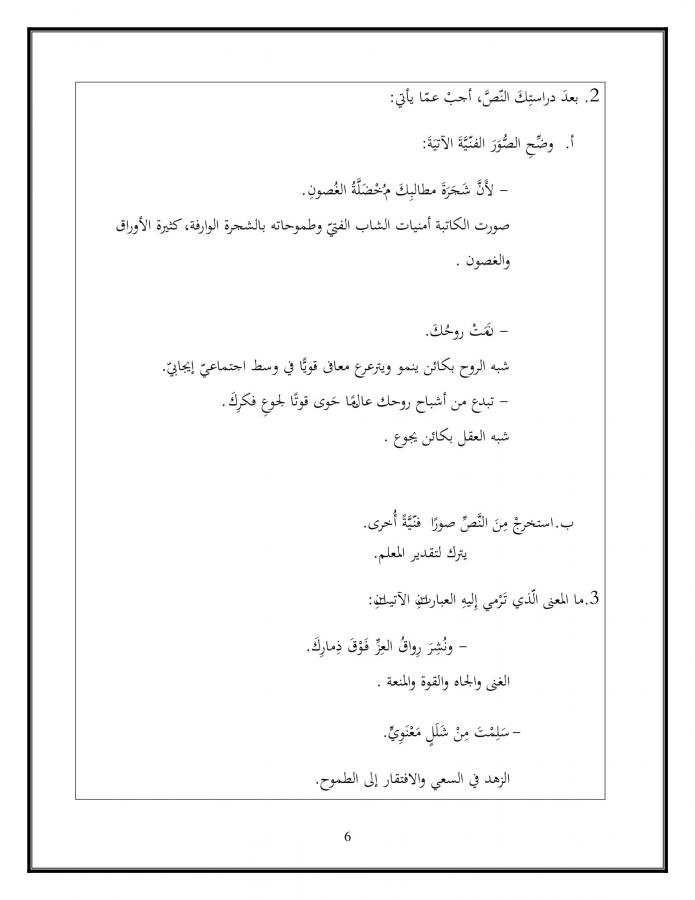 2. بعدَ دراستِكَ النّصَّ، أجبْ عمّا يأتي:
أ. وضِّحِ الصُّوَرَ الفنّيَّةَ الآتيَةَ:
– لأَنَّ شَجَرَةَ مطالبِكَ مُخْضَلَّةُ الغُصونِ.
صورت الكاتبة أمنيات الشاب الفتيّ وطموحاته بالشجرة الوارفة، كثيرة الأوراق
والغصون .
– نمَتْ روحُكَ.
شبه الروح بكائن ينمو ويترعرع معافى قويًّا في وسط اجتماعيّ إيجابيّ.
– تبدع من أشباح روحك عالمًا حَوى قوتًا لجوعِ فكرِكَ.
شبه العقل بكائن يجوع .
ب. استخرجْ مِنَ النَّصِّ صورًا فنّيَّةً أُخرى.
يترك لتقدير المعلم.
3. ما المعنى الّذي تَرْمي إليهِ العبارتانِ الآتيتانِ:
– ونُشِرَ رِواقُ العِزِّ فَوْقَ ذِمارِكَ.
الغنى والجاه والقوة والمنعة .
– سَلِمْتَ مِنْ شَلَلٍ مَعْنَوِيٍّ.
الزهد في السعي والافتقار إلى الطموح.
6